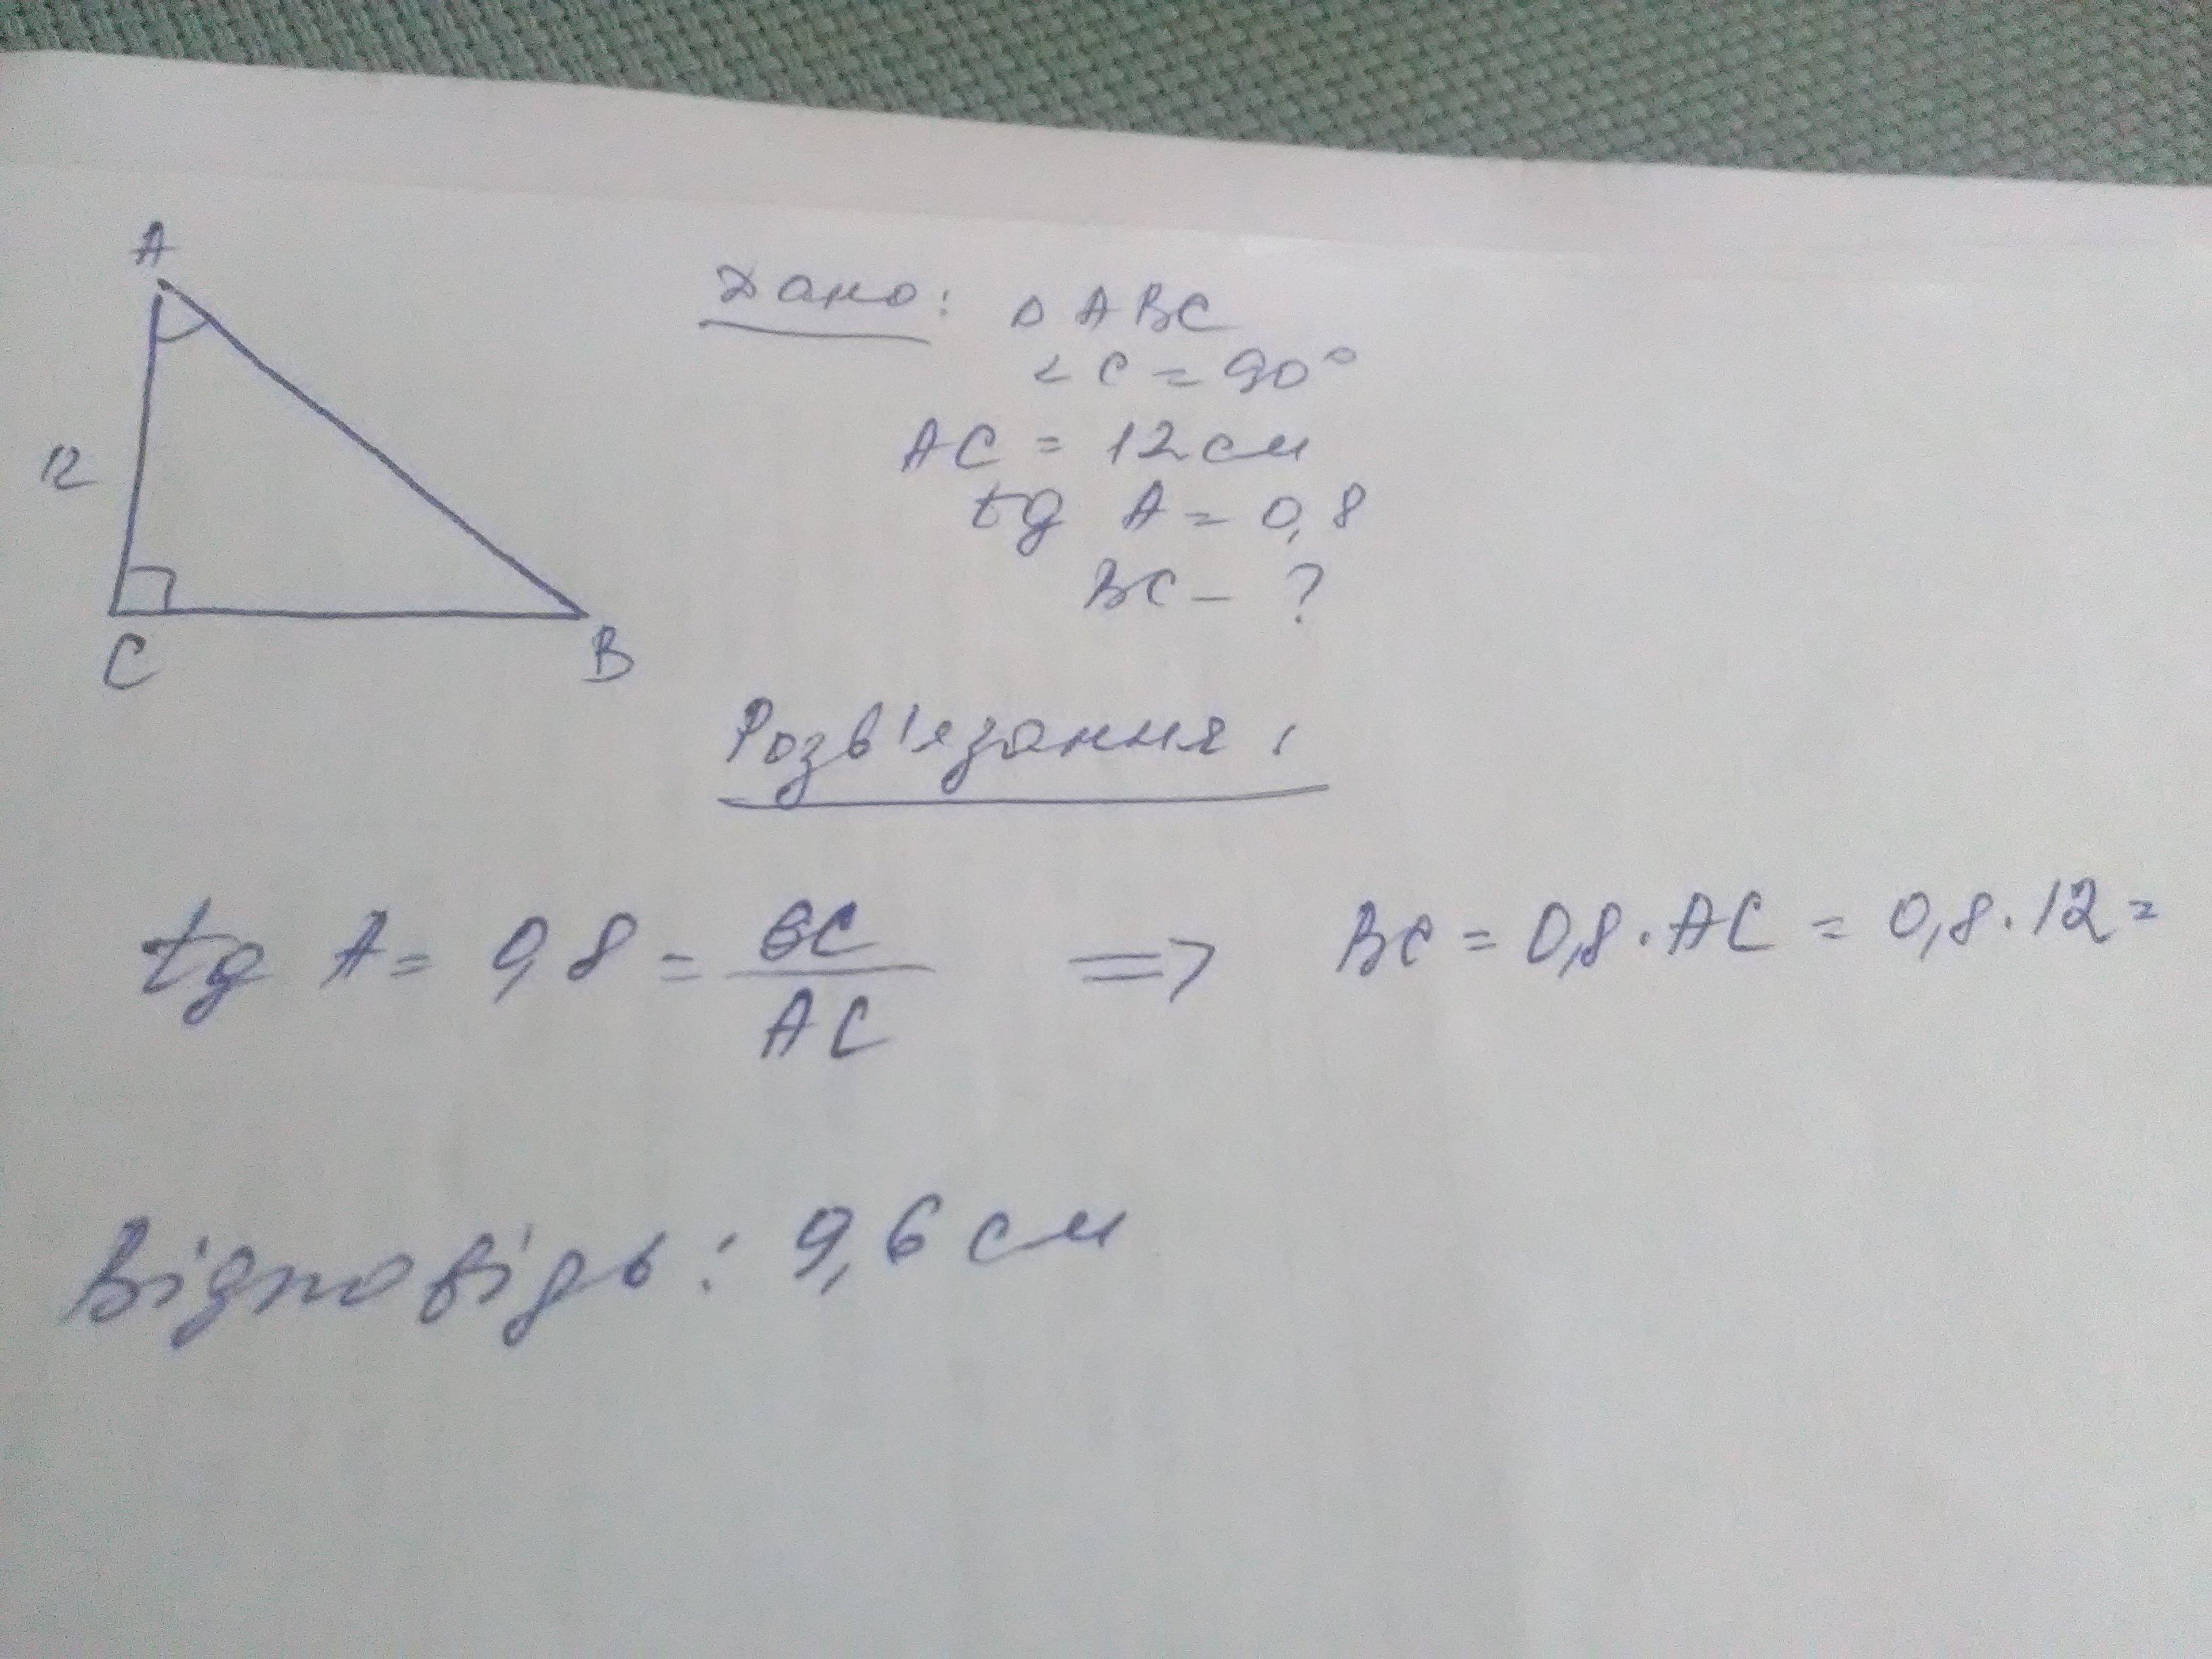 A
12
C
B
Дано: △ ABC
∠ C = 90°
AC = 12 см
tg A = 0,8
BC - ?
Розв'язання:
tg A = 0,8 = BC / AC => BC = 0,8 · AC = 0,8 · 12 =
Відповідь: 9,6 см